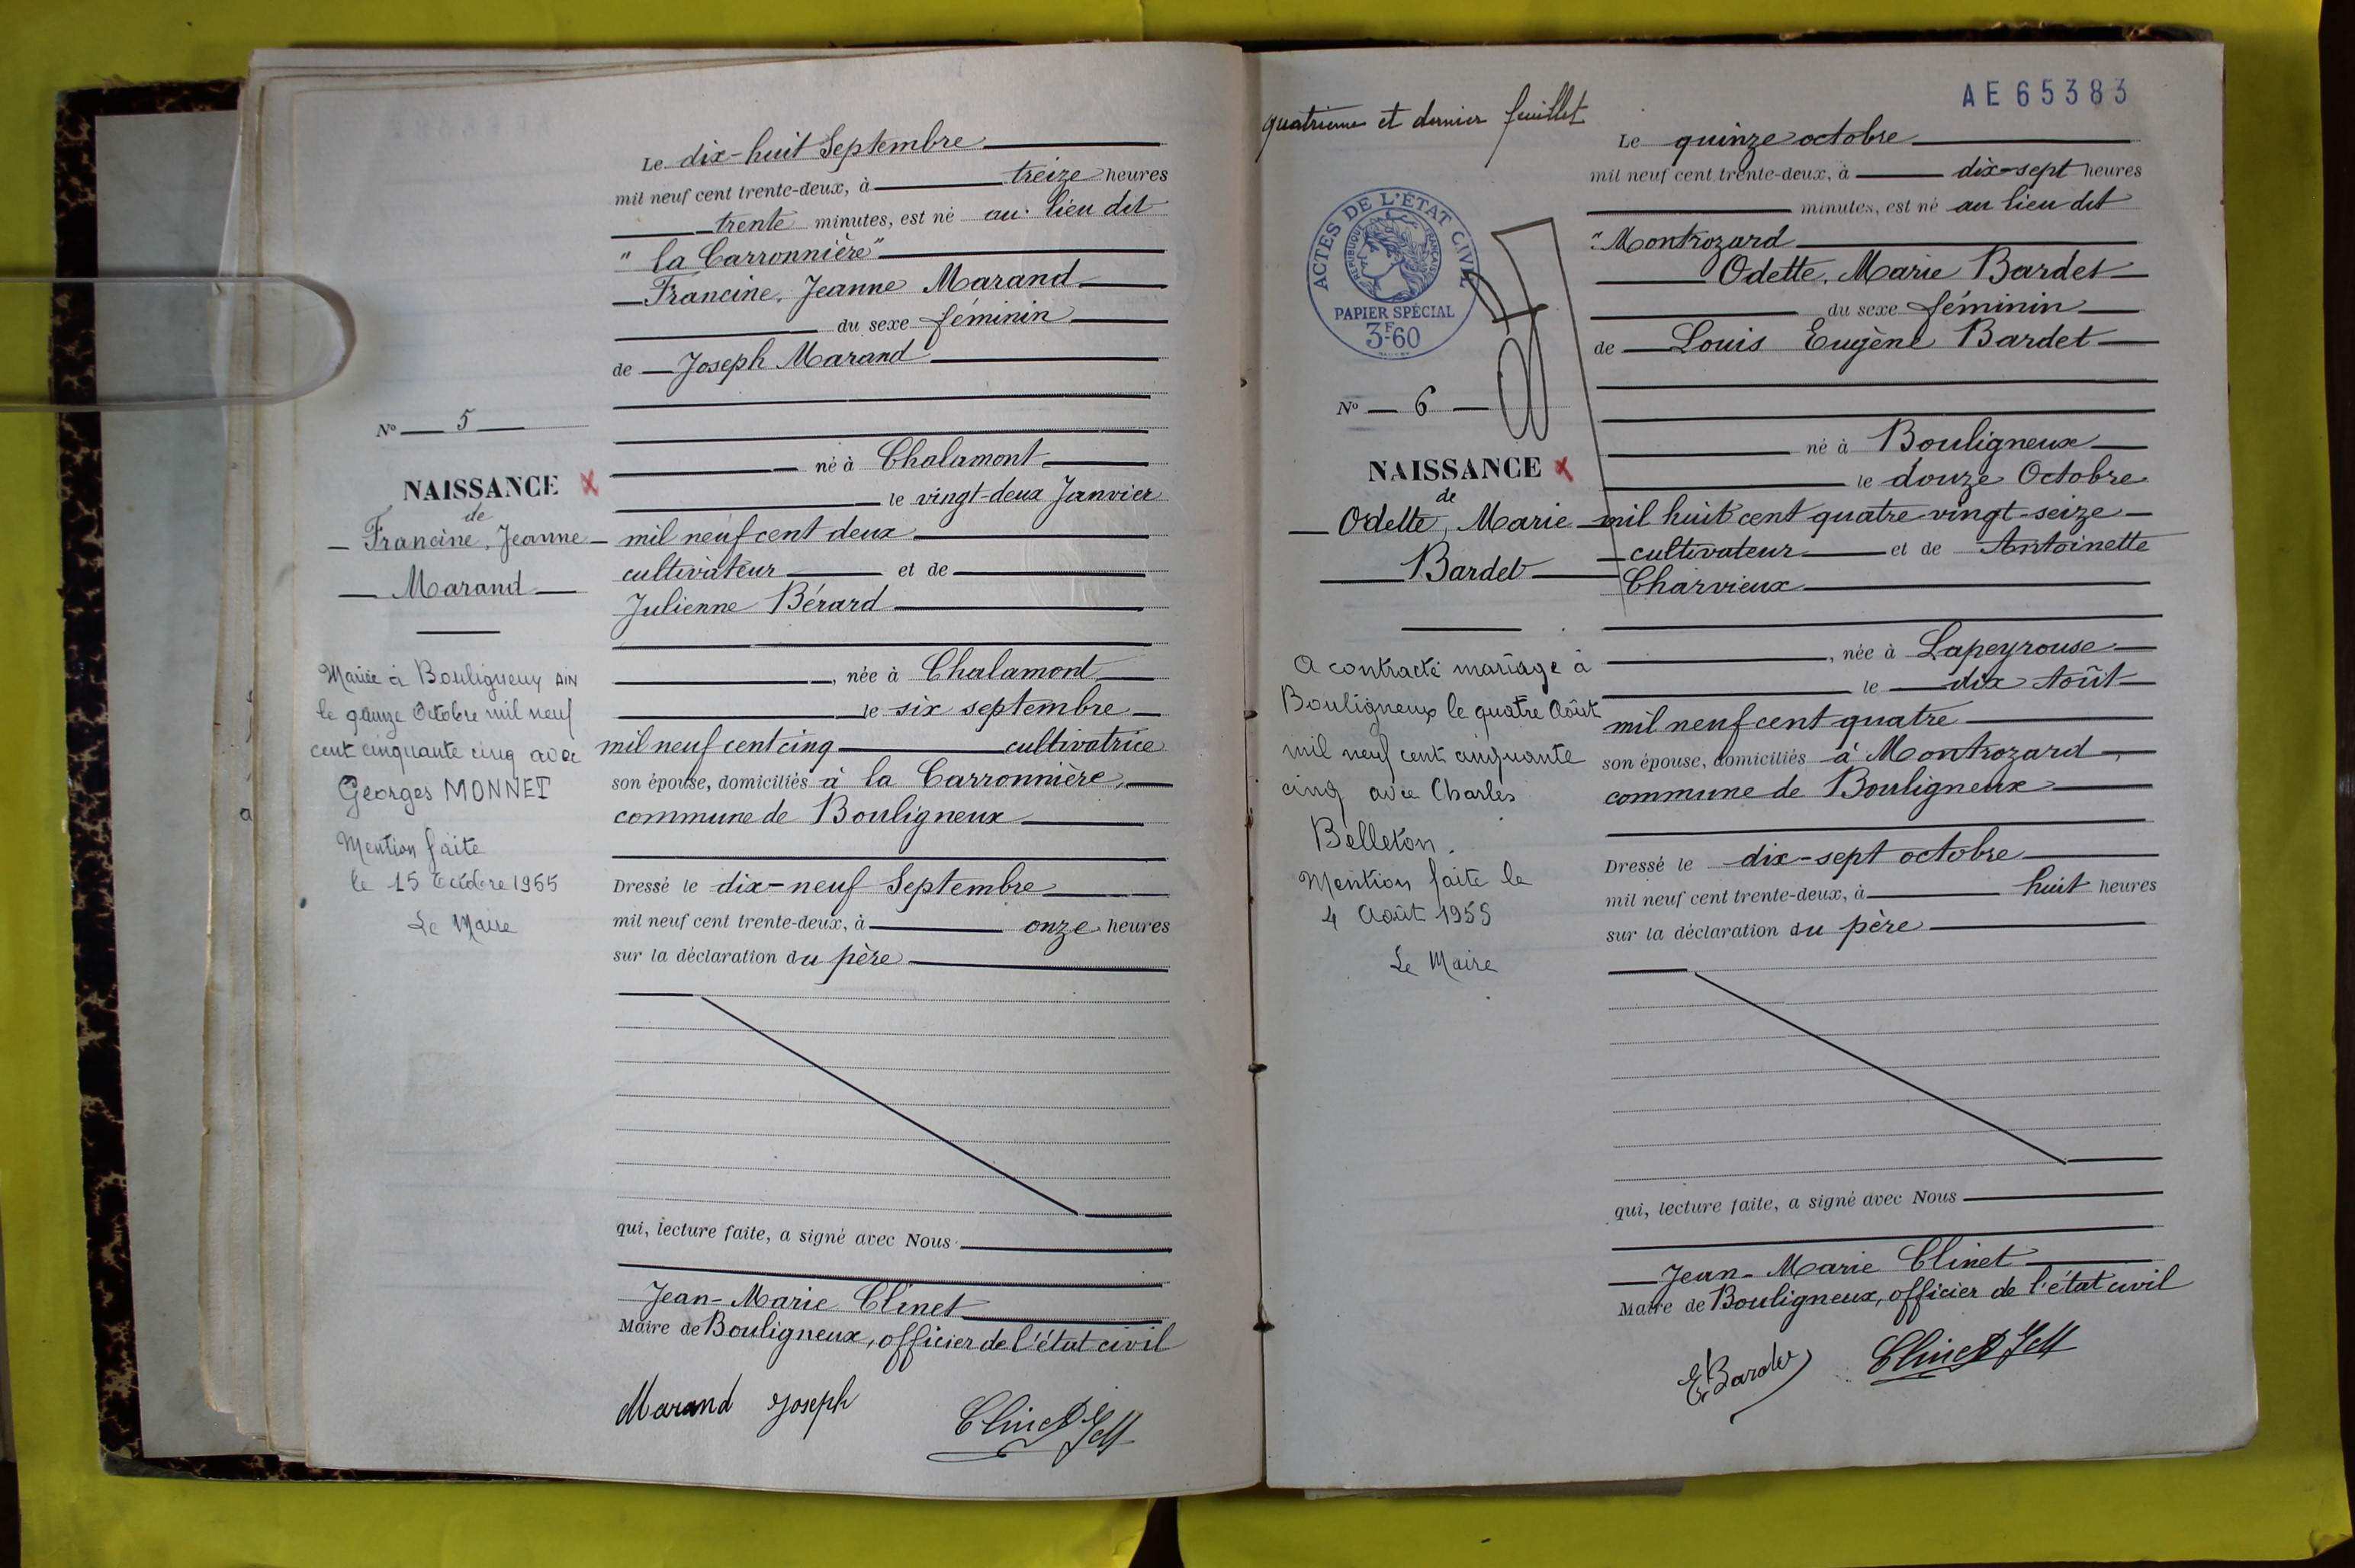 Le dix-huit Septembre
mil neuf cent trente-deux, à treize heures
trente minutes, est né au lieu dit
"la Carronnière"
Francine, Jeanne Marand
du sexe féminin
de Joseph Marand
né à Chalamont
le vingt-deux Janvier
mil neuf cent deux
cultivateur et de
Julienne Bérard
, née à Chalamont
le six septembre
mil neuf cent cinq cultivatrice
son épouse, domiciliés à la Carronnière,
commune de Bouligneux
Dressé le dix-neuf Septembre
mil neuf cent trente-deux, à onze heures
sur la déclaration du père
qui, lecture faite, a signé avec Nous
Jean-Marie Clinet
Maire de Bouligneux, officier de l'état civil
Marand Joseph
N° 5
NAISSANCE
de
Francine, Jeanne
Marand
Mariée à Bouligneux AIN
le quinze Octobre mil neuf
cent cinquante cinq avec
Georges MONNET
Mention faite
le 15 Octobre 1955
Le Maire
quatrième et dernier feuillet
AE65383
ACTES DE L'ÉTAT CIVIL
REPUBLIQUE FRANÇAISE
PAPIER SPÉCIAL
3F60
N° 6
NAISSANCE
de
Odette, Marie
Bardet
A contracté mariage à
Bouligneux le quatre Août
mil neuf cent cinquante
cinq avec Charles
Belleton.
Mention faite le
4 Août 1955
Le Maire
Le quinze octobre
mil neuf cent trente-deux, à dix-sept heures
minutes, est né au lieu dit
"Montrozard
Odette, Marie Bardet
du sexe féminin
de Louis Eugène Bardet
né à Bouligneux
le douze Octobre
mil huit cent quatre-vingt-seize
cultivateur et de Antoinette
Charvieux
, née à Lapeyrouse
le dix Août
mil neuf cent quatre
son épouse, domiciliés à Montrozard,
commune de Bouligneux
Dressé le dix-sept octobre
mil neuf cent trente-deux, à huit heures
sur la déclaration du père
qui, lecture faite, a signé avec Nous
Jean-Marie Clinet
Maire de Bouligneux, officier de l'état civil